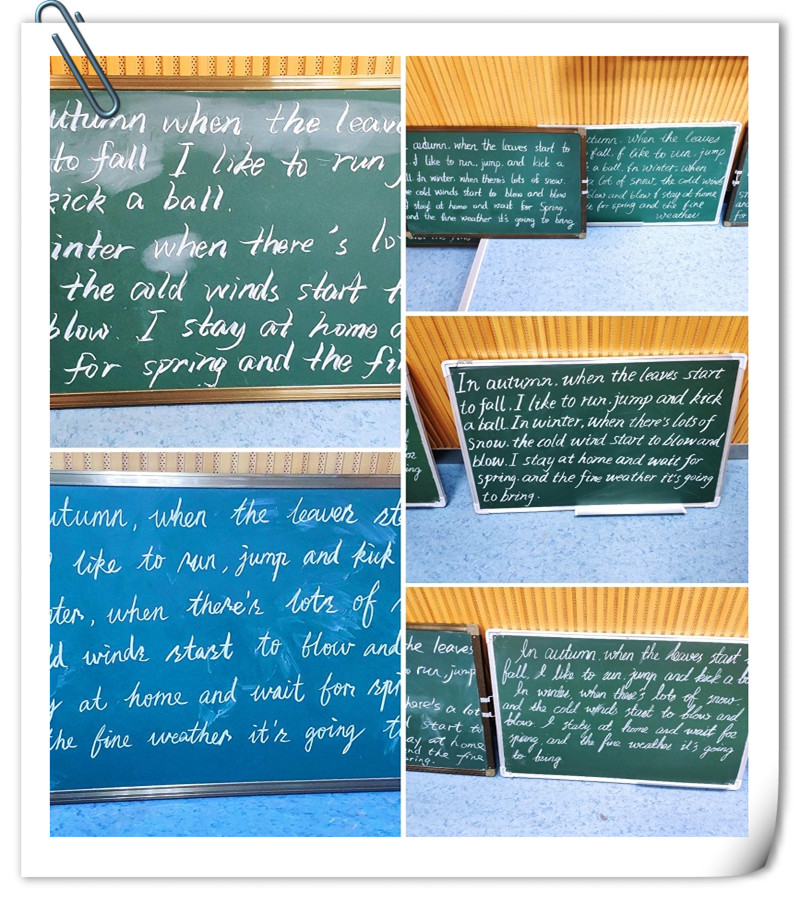 utumn when the leave
to fall I like to run
kick a ball.
inter when there's lo
the cold winds start t
blow. I stay at home a
for spring and the fin
autumn. when the leaves start to
I like to run. jump. and kick a
ll. In winter. when there's lots of snow.
e cold winds start to blow and blow
I stay at home and wait for Spring.
and the fine weather it's going to bring
tumn. When the leaves
fall. I like to run. jump
a ball. In winter. when
a lot of snow, the cold winds
blow and blow I stay at home
for spring and the fine
weather
In autumn. when the leaves start
to fall. I like to run. jump and kick
a ball. In winter, when there's lots of
snow. the cold wind start to blow and
blow. I stay at home and wait for
spring. and the fine weather it's going
to bring.
utumn, when the leaves sta
I like to run, jump and kick
nter, when there's lots of
ld winds start to blow and
y at home and wait for spri
the fine weather it's going t
the leaves
o run, jump
here's a lot
start to
ay at home
nd the fine
ring.
In autumn. when the leaves start
fall. I like to run. jump and kick a b
In winter, when there's lots of snow.
and the cold winds start to blow and
blow I staty at home and wait for
spring, and the fine weather it's going
to bring